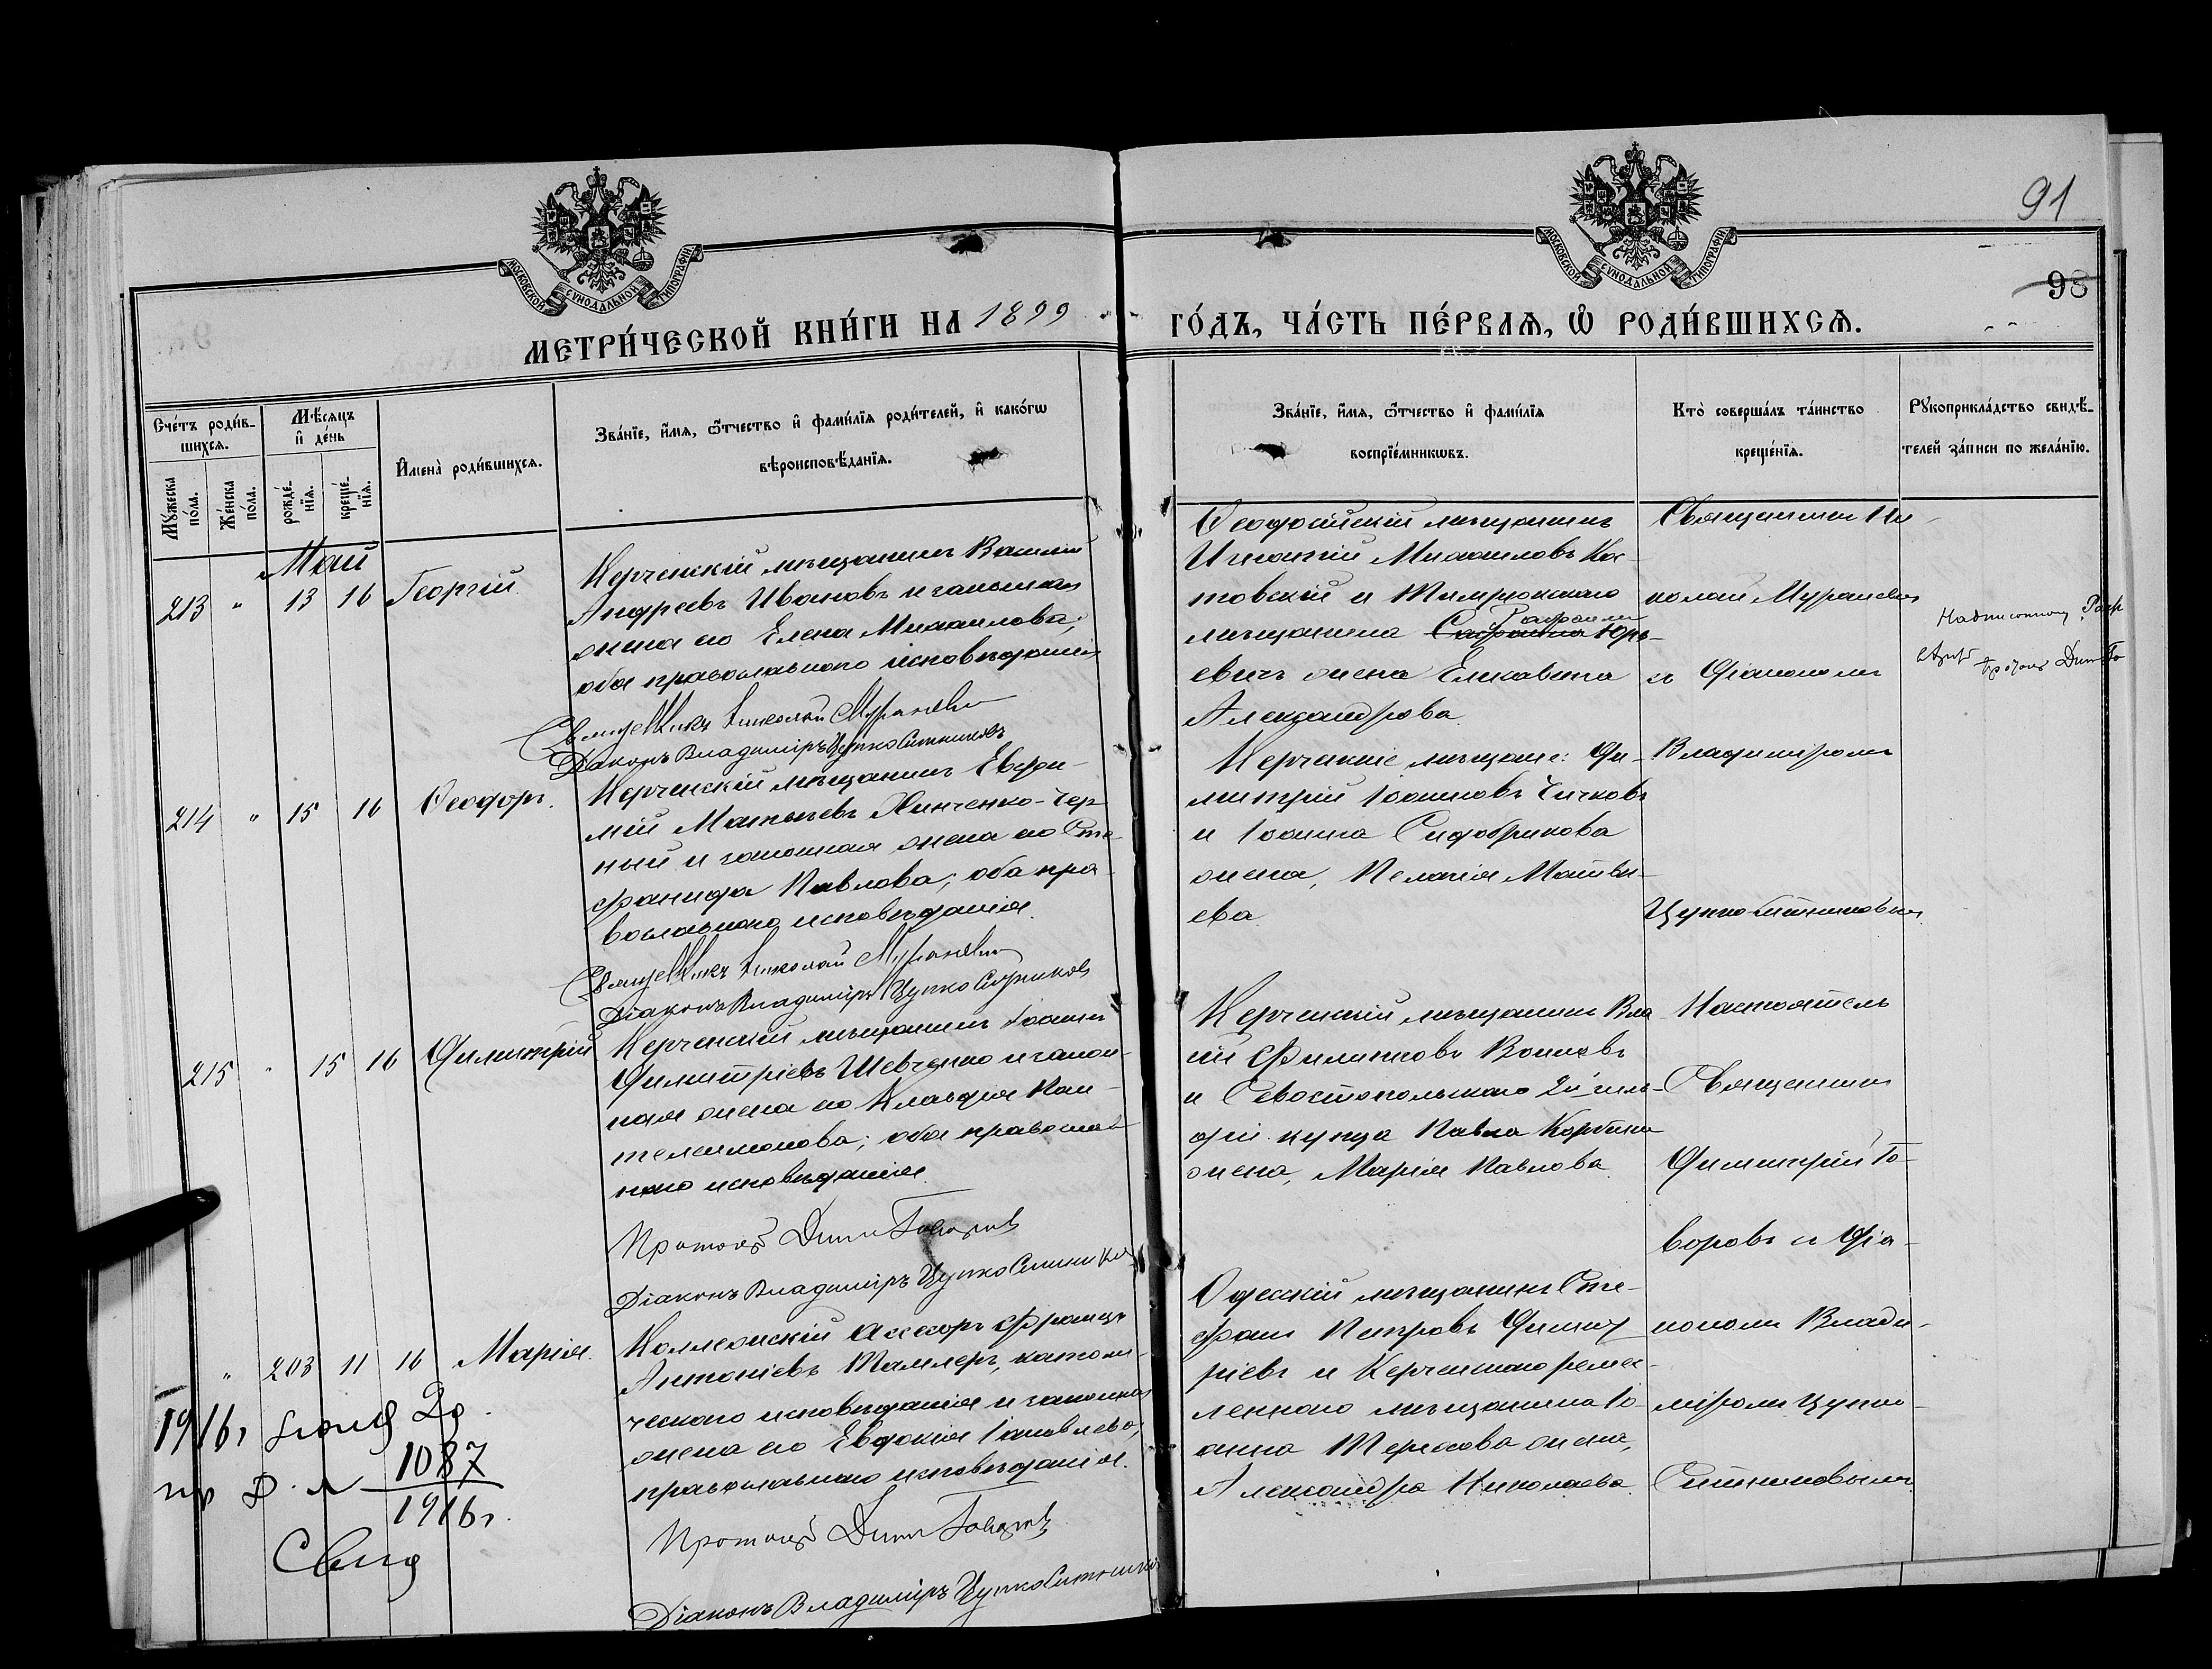 91
98
МОСКОВСКОЙ СѴНОДАЛЬНОЙ ТИПОГРАФІИ
МОСКОВСКОЙ СѴНОДАЛЬНОЙ ТИПОГРАФІИ
МЕТРИ́ЧЕСКОЙ КНИ́ГИ НА 1899
ГО́ДЪ, ЧА́СТЬ ПЕ́РВАѦ, Ѽ РОДИ́ВШИХСѦ.
Сче́тъ роди́в-
шихсѧ.
Мꙋ́жеска по́ла.
Же́нска по́ла.
Мѣ́сѧцъ и҆ де́нь
рожде́-нїѧ.
креще́-нїѧ.
И҆мена̀ роди́вшихсѧ.
Зва́нїе, и҆́мѧ, ѻ҆́тчество и҆ фами́лїѧ роди́телей, и҆ како́гѡ
вѣроисповѣ́данїѧ.
Зва́нїе, и҆́мѧ, ѻ҆́тчество и҆ фами́лїѧ
воспрїе́мникѡвъ.
Кто̀ соверша́лъ та́инство
креще́нїѧ.
Рꙋкоприкла́дство свидѣ́-
телей за́писи по жела́нїю.
Май
213 " 13 16 Георгій.
Керченскій мѣщанинъ Василій
Андреевъ Ивановъ и законная
жена его Елена Михаилова;
оба православнаго исповѣданія
Священникъ Николай Мураневичъ
Діаконъ Владиміръ Цупко Ситниковъ
Ѳеодосійскій мѣщанинъ
Игнатій Михаиловъ Ко-
товскій и Темрюкскаго
мѣщанина Юрь-
евичъ жена Елисавета
Александрова.
Священник Ни-
колай Мураневич
съ Діакономъ
Владиміромъ
Цупко-Ситниковым.
214 " 15 16 Ѳеодоръ.
Керченскій мѣщанинъ Евфи-
мій Матѳеевъ Хинченко-Чер-
ный и законная жена его Сте-
фанида Павлова; оба пра-
вославнаго исповѣданія.
Священникъ Николай Мураневич
Діаконъ Владиміръ Цупко Ситниковъ
Керченскіе мѣщане: Ди-
митрій Іоанновъ Чичковъ
и Іоанна Сидобрикова
жена, Пелагія Матвѣ-
ева
215 " 15 16 Димитрій
Керченскій мѣщанинъ Іоаннъ
Димитріевъ Шевченко и закон-
ная жена его Клавдія Пан-
телеимонова; оба православ-
наго исповѣданія.
Протоіер. Дим. Говоровъ
Діаконъ Владиміръ Цупко Ситников
Филипповъ
и Севастопольскаго 2й гиль-
діи купца Павла
жена, Марія Павлова.
Настоятель
Священник
Димитрій Го-
воровъ и Діа-
кономъ Влади-
міромъ Цупко-
Ситниковымъ
" 203 11 16 Марія.
Коллежскій Ассесоръ Францъ
Антоніевъ католи-
ческаго исповѣданія и законная
жена его Евдокія Іаковлева,
православнаго исповѣданія.
Протоіер. Дим. Говоровъ
Діаконъ Владиміръ Цупко Ситников
Одесскій мѣщанинъ Сте-
фанъ Петровъ Димит-
ріевъ и Керченскаго ремес-
леннаго мѣщанина Іо-
анна жена,
Александра Николаева.
1916г
1087
1916г.
Свид